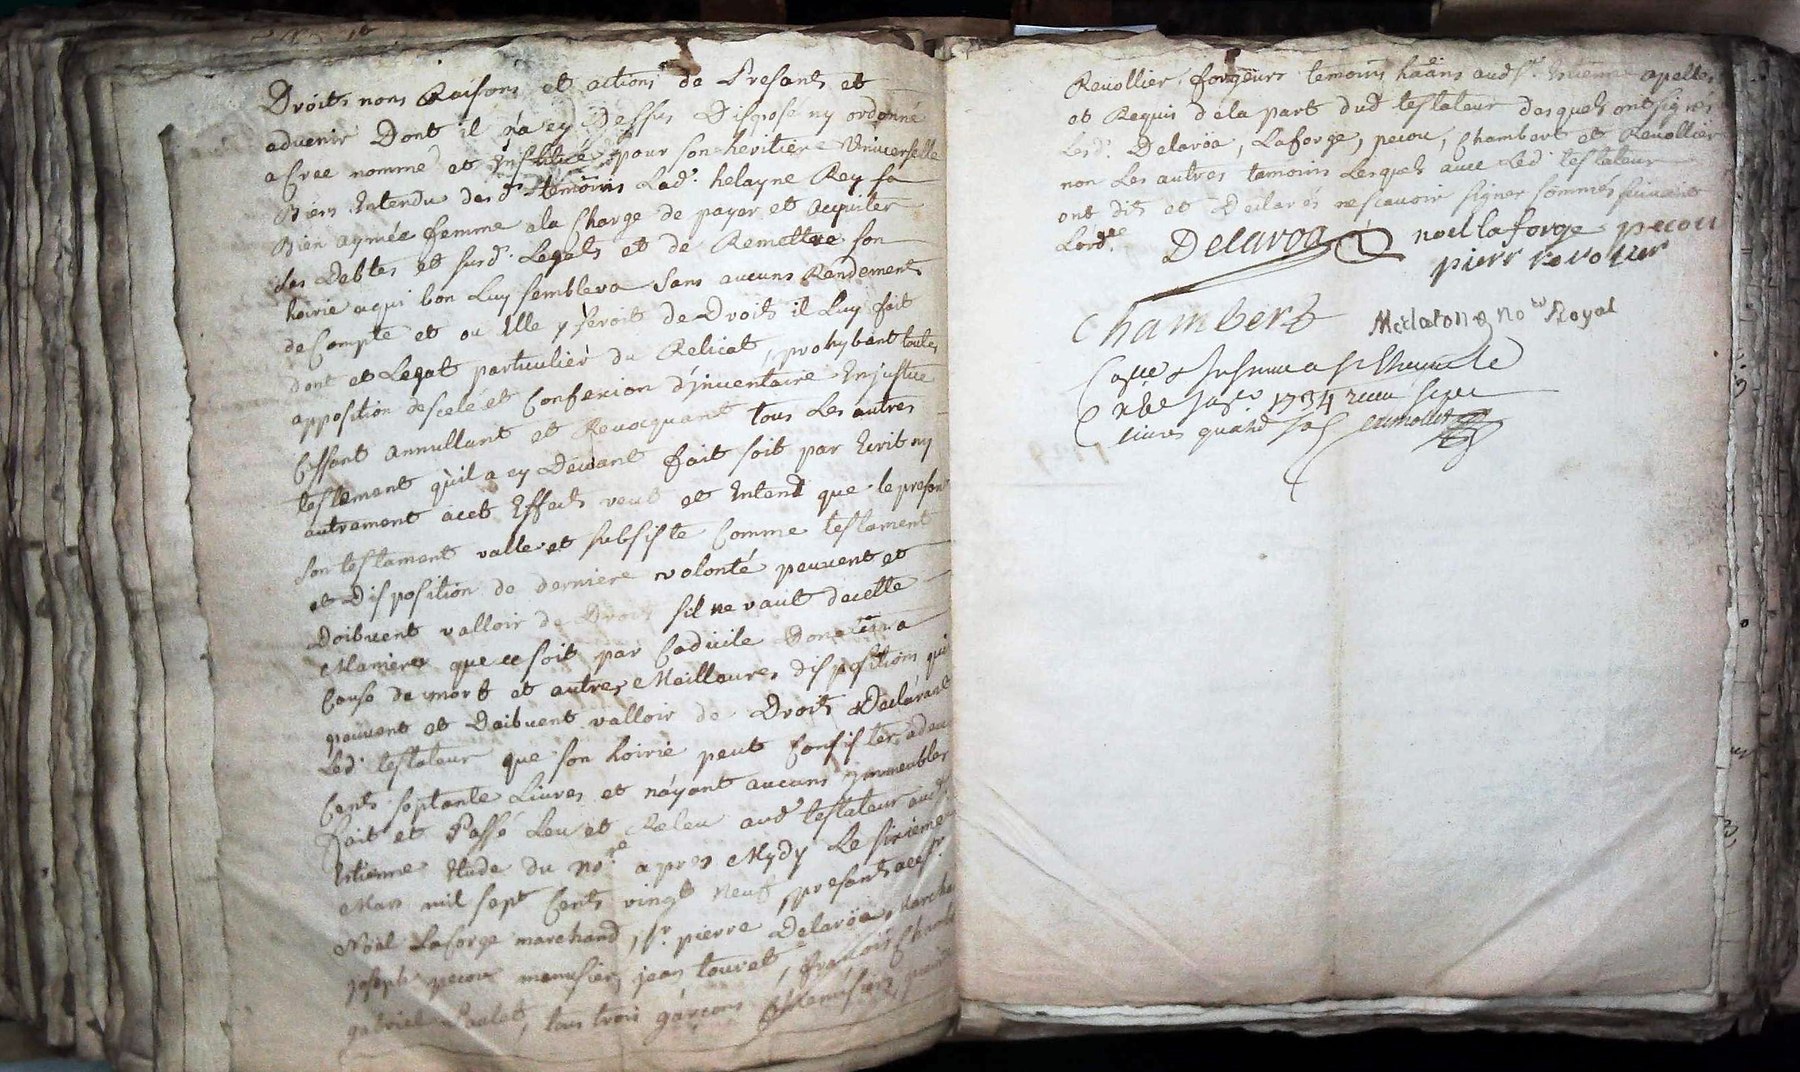 Droits noms Raisons et actions de Presants et
advenir Dont il n'a cy Dessus Disposé ny ordonné
a Cree nommé et Institué pour son heritiere Universelle
Bien Entendu desd. temoins Lad. helayne Rey sa
Bien aymée femme ala Charge de payer et acquiter
Les Debtes et susd. Legats et de Remettre son
hoirie aqui bon Luy semblera sans aucuns Rendements
de Compte et ou Elle y seroit de Droits il Luy fait
dont et Legat particulier du Relicat, prohybant toutes
apposition de scelé et Confexion d'inventaire Enjustice
Cassant annullant et Revocquant tous Les autres
testament qu'il a cy Devant fait soit par Ecrit ny
autrement acet Effects veut et Entend que le presant
son testament valle et subsiste Comme testament
et Disposition de derniere volonté peuvent et
Doibvent valloir de Droit sil ne vaut decette
Maniere que ce soit par Codicile Donation a
Cause de mort et autres Meilleures dispositions qui
peuvent et Doibvent valloir de Droits Declarant
Led. testateur que son hoirie peut Consister adeux
Cents soptante Livres et n'ayant aucuns ymmeubles
fait et Passé Leu et Releu aud. testateur aud.
Etienne Etude du No.re apres Mydy Le sixieme
Mars mil sept Cents vingt Neuf, presants a ce sr.
Nöel Laforge marchand, sr. pierre Delaröa, Marchand
joseph pecou menusier, jean touret, francois Chambert
gabriel Paulet, tous trois garcons Menusiers,
Revollier, forgeurs temoins aud. st. Etienne apellés
et Requis dela part dud. testateur desquels ont signés
Lesd. Delaröa, Laforge, pecou, Chambert et Revollier
non Les autres temoins Lesquels avec Led. testateur
ont dits et Declarés nescavoir signer sommés suivant
Lord.ce
Delaroa noel laforge pecou
pierr revolier
Chambert no.re Royal
1734 recu
livres